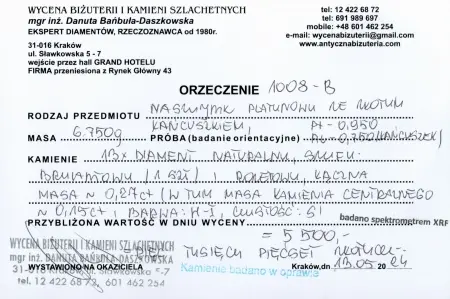 WYCENA BIŻUTERII I KAMIENI SZLACHETNYCH
mgr inż. Danuta Bańbuła-Daszkowska
EKSPERT DIAMENTÓW, RZECZOZNAWCA od 1980r.
31-016 Kraków
ul. Sławkowska 5 - 7
wejście przez hall GRAND HOTELU
FIRMA przeniesiona z Rynek Główny 43
tel: 12 422 68 72
tel: 691 989 697
mobile: +48 601 462 254
e-mail: wycenabizuterii@gmail.com
www.antycznabizuteria.com
ORZECZENIE 1008-B
RODZAJ PRZEDMIOTU NASZYJNIK PLATYNOWY ZE ZŁOTYM
ŁAŃCUSZKIEM, Pt-0,950
MASA 6.750g PRÓBA (badanie orientacyjne) Au-0,750 (ŁAŃCUSZEK)
KAMIENIE 13x DIAMENT NATURALNY, SZLIF:
BRYLANTOWY (1 szt) i ROZETOWY, ŁĄCZNA
MASA ~ 0,27ct (W TYM MASA KAMIENIA CENTRALNEGO
~ 0,15ct, BARWA: H-I, CZYSTOŚĆ: SI
PRZYBLIŻONA WARTOŚĆ W DNIU WYCENY badano spektrometrem XRF
= 5 500,-
PIĘĆ TYSIĘCY PIĘĆSET ZŁOTYCH
WYCENA BIŻUTERII I KAMIENI SZLACHETNYCH
mgr inż. DANUTA BAŃBUŁA-DASZKOWSKA
31-016 Kraków, ul. Sławkowska 5-7
tel. 12 422 68 72, 601 462 254
WYSTAWIONO NA OKAZICIELA
Kamienie badano w oprawie
Kraków, dn. 13.05 2024